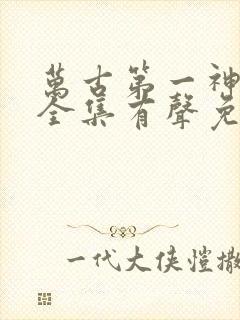 萬古第一神
全集有聲免
一代大侠愷撒